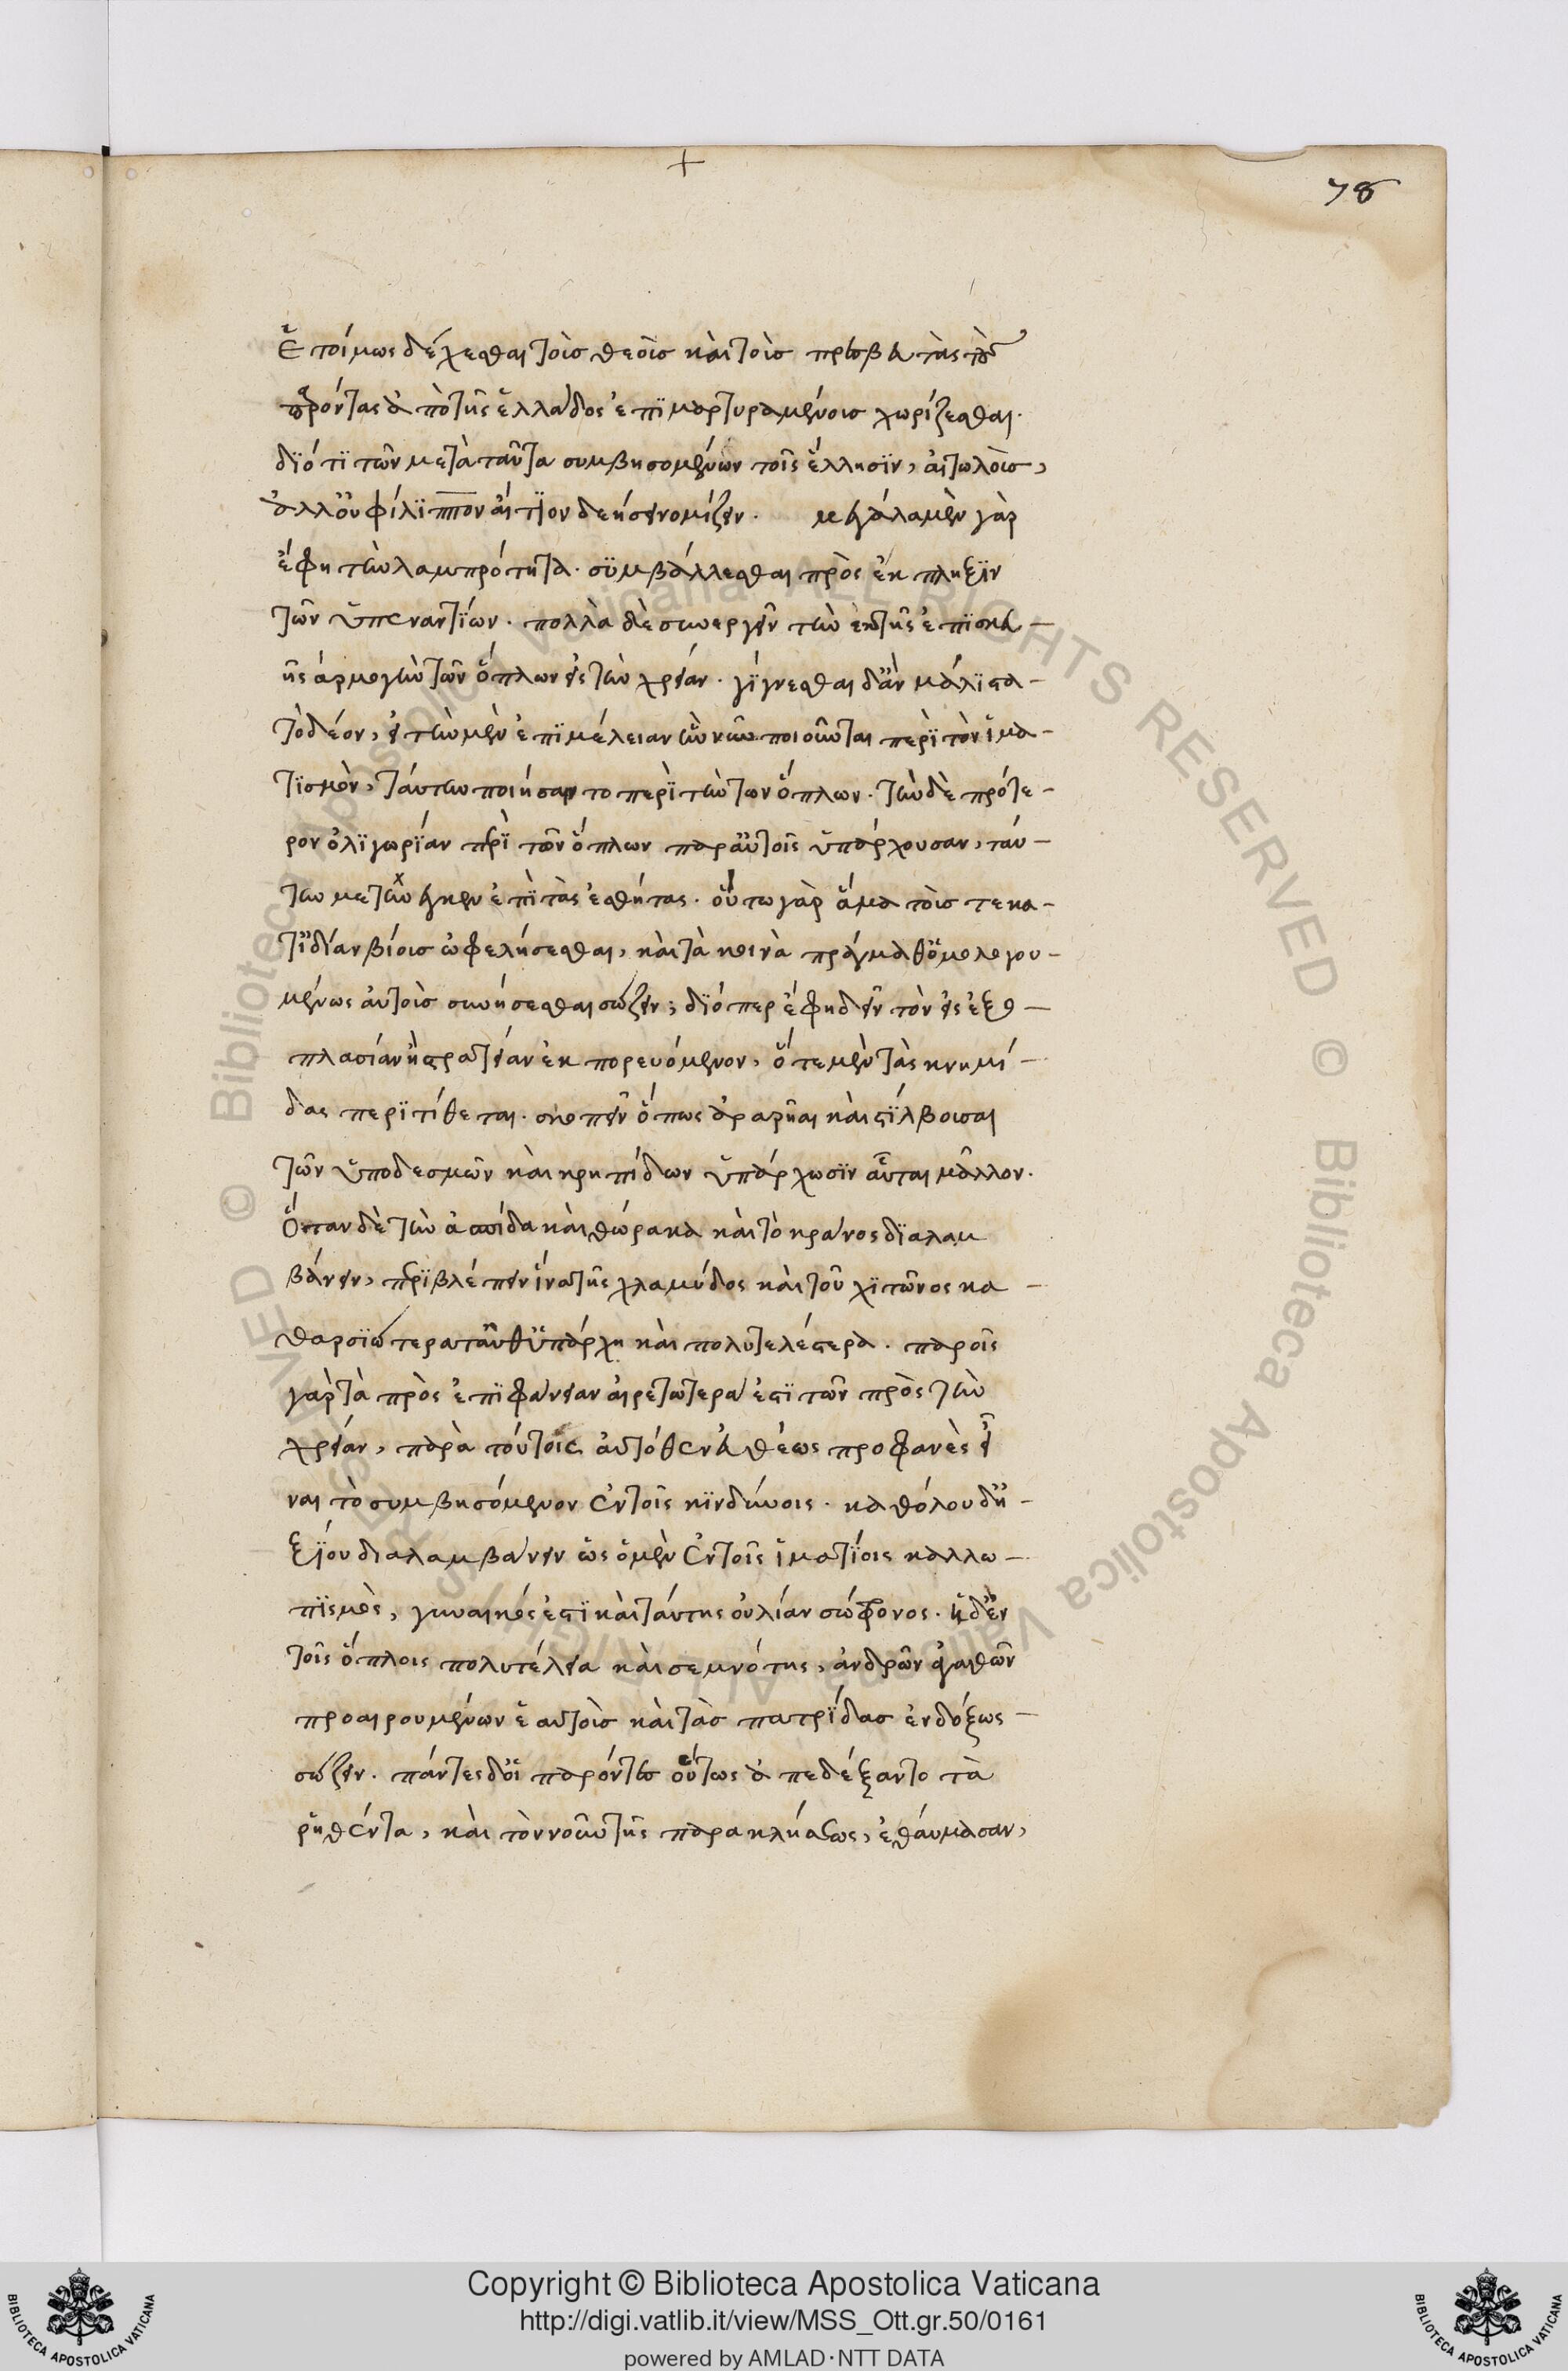 +
78
ἑτοίμως δέχεσθαι τοῖς θεοῖς καὶ τοῖς πρεσβευτὰς τοὺς
παρόντας ἀπὸ τῆς ἑλλάδος ἐπιμαρτυραμένοις χωρίζεσθαι.
διότι τῶν μετὰ ταῦτα συμβησομένων τοῖς ἕλλησιν, αἰτωλοῖς,
ἀλλ' οὐ φίλιππον αἴτιον δεήσει νομίζειν. μεγάλα μὲν γὰρ
ἔφη τὴν λαμπρότητα. συμβάλλεσθαι πρὸς ἔκπληξιν
τῶν ὑπεναντίων. πολλὰ δὲ συνεργεῖν τὴν ἐκ τῆς ἐπισκευ-
ῆς ἁρμογὴν τῶν ὅπλων εἰς τὴν χρείαν. γίγνεσθαι δ' ἂν μάλιστα-
τὸ δέον, εἰ τὴν μὲν ἐπιμέλειαν ἣν νῦν ποιοῦνται περὶ τὸν ἱμα-
τισμὸν, ταύτην ποιήσαιντο περὶ τὴν τῶν ὅπλων. τὴν δὲ πρότε-
ρον ὀλιγωρίαν περὶ τῶν ὅπλων παρ' αὐτοῖς ὑπάρχουσαν, ταύ-
την μετενέγκεν ἐπὶ τὰς ἐσθῆτας. οὕτω γὰρ ἅμα τοῖς τε κα-
τ' ἰδίαν βίοις ὠφελήσεσθαι, καὶ τὰ κοινὰ πράγμαθ' ὁμολογου-
μένως αὐτοῖς συνήσεσθαι σώζειν; διόπερ ἔφη δεῖν τὸν εἰς ἐξο-
πλασίαν ἢ στρατείαν ἐκπορευόμενον, ὅτε μὲν τὰς κνημί-
δας περιτίθεται. σκοπεῖν ὅπως ἀραρῆαι καὶ στίλβουσαι
τῶν ὑποδεσμῶν καὶ κρηπίδων ὑπάρχωσιν αὗται μᾶλλον.
Ὅταν δὲ τὴν ἀσπίδα καὶ θώρακα καὶ τὸ κράνος διαλαμ
βάνειν, περιβλέπειν ἵνα τῆς χλαμύδος καὶ τοῦ χιτῶνος κα-
θαρσιώτερα ταῦθ' ὑπάρχη καὶ πολυτελέστερα. παρ' οἷς
γὰρ τὰ πρὸς ἐπιφάνειαν αἱρετώτερα ἐστι τῶν πρὸς τὴν
χρείαν, παρὰ τούτοις αὐτόθεν εὐθέως προφανὲς εἶ
ναι τὸ συμβησόμενον ἐν τοῖς κινδύνοις. καθόλου δ' ἠ-
ξίου διαλαμβάνειν ὡς ὁ μὲν ἐν τοῖς ἱματίοις καλλω-
πισμὸς, γυναικός ἐστι καὶ ταύτης οὐ λίαν σώφρονος. ἡ δ' ἐν
τοῖς ὅπλοις πολυτέλεια καὶ σεμνότης, ἀνδρῶν ἀγαθῶν
προαιρουμένων ἑαυτοῖς καὶ τὰς πατρίδας ἐνδόξως-
σώζειν. πάντες δ' οἱ παρόντες οὕτως ἀπεδέξαντο τὰ
ῥηθέντα, καὶ τὸν νοῦν τῆς παρακλήσεως, ἐθαύμασαν,
© Biblioteca Apostolica Vaticana ALL RIGHTS RESERVED © Biblioteca Apostolica Vaticana ALL RIGHTS RESERVED
BIBLIOTECA APOSTOLICA VATICANA
Copyright © Biblioteca Apostolica Vaticana
http://digi.vatlib.it/view/MSS_Ott.gr.50/0161
powered by AMLAD·NTT DATA
BIBLIOTECA APOSTOLICA VATICANA